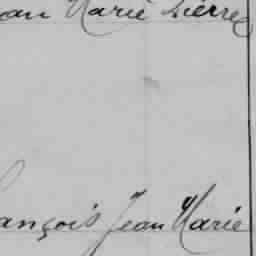 an Marie Pierre
ançois Jean Marie